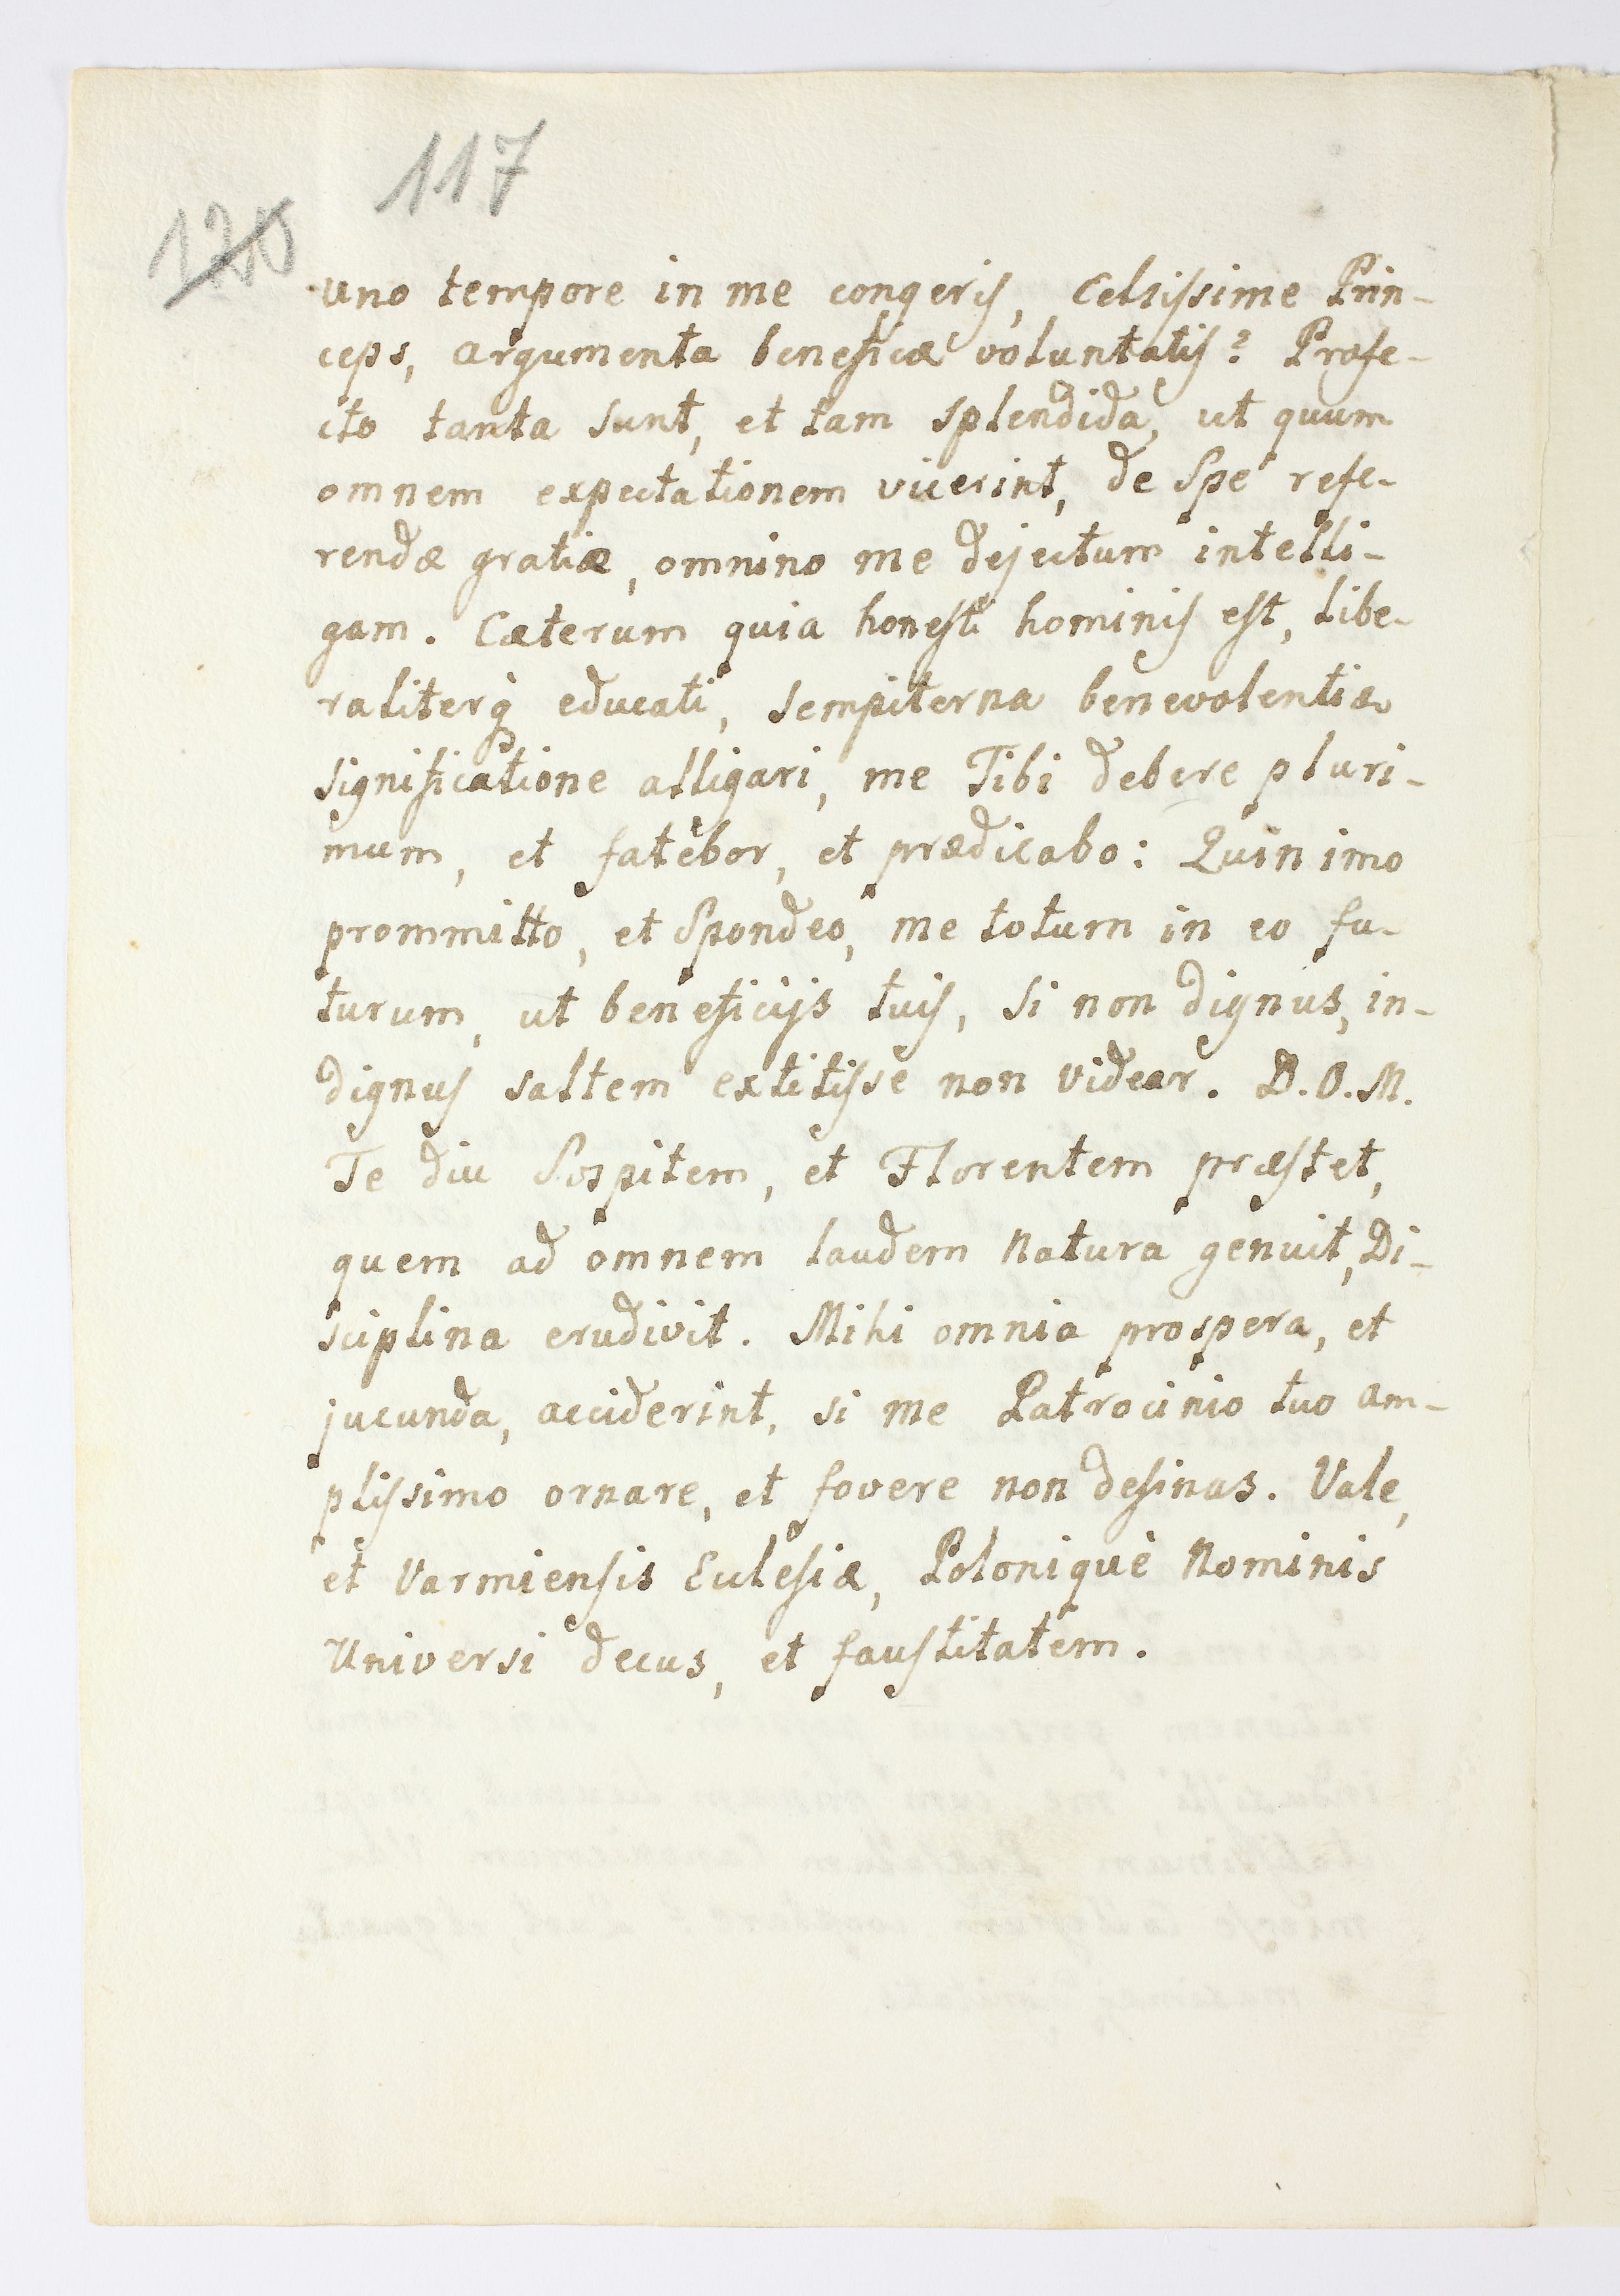 117
120
uno tempore in me congeris, Celsissime Prin-
ceps, argumenta beneficæ voluntatis? Profe-
cto tanta sunt, et tam splendida, ut quum
omnem expectationem vicerint, de Spe refe-
rendæ gratiæ, omnino me dejectum intelli-
gam. Cæterum quia honesti hominis est, libe-
raliterq̀ educati, sempiterna benevolentiæ
significatione alligari, me Tibi debere pluri-
mum, et fatebor, et prædicabo: Quin imo
prommitto, et Spondeo, me totum in eo fu-
turum, ut beneficijs tuis, si non dignus, in-
dignus saltem extitisse non videar. D.O.M.
Te diu Sospitem, et Florentem præstet,
quem ad omnem laudem Natura genuit, Di-
sciplina erudivit. Mihi omnia prospera, et
jucunda, acciderint, si me Patrocinio tuo am-
plissimo ornare, et fovere non desinas. Vale,
et Varmiensis Ecclesiæ, Poloniquè Nominis
Universi decus, et faustitatem.